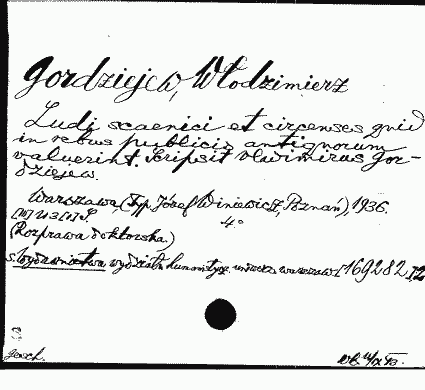 Gordziejew, Włodzimierz
Ludi scaenici et circenses quid
in rebus publicis antiquorum
valuerint. Scripsit Vladimirus Gor-
dziejew.
Warszawa, (Typ. Józef Winiewicz, Poznań), 1936.
4°
(Rozprawa doktorska.)
s. Wydawnictwa wydziału humanistycz. warszaw. [169282